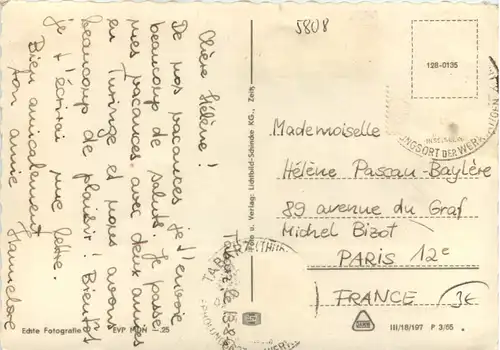 5808
128-0135
Chère Hélène !
De nos vacances je t'envoie
beaucoup de saluts. Je passe
mes vacances avec deux amies
en Turinge et nous avons
beaucoup de plaisir ! Bientôt
je t'écrirai une lettre.
Bien amicalement
ton amie
Hannelore
Mademoiselle
Hélène Passau-Baylère
89 avenue du Graf
Michel Bizot
PARIS 12e
FRANCE
3€
Echte Fotografie
EVP MDN -.25
u. Verlag: Lichtbild-Schincke KG., Zeitz
III/18/197 P 3/65